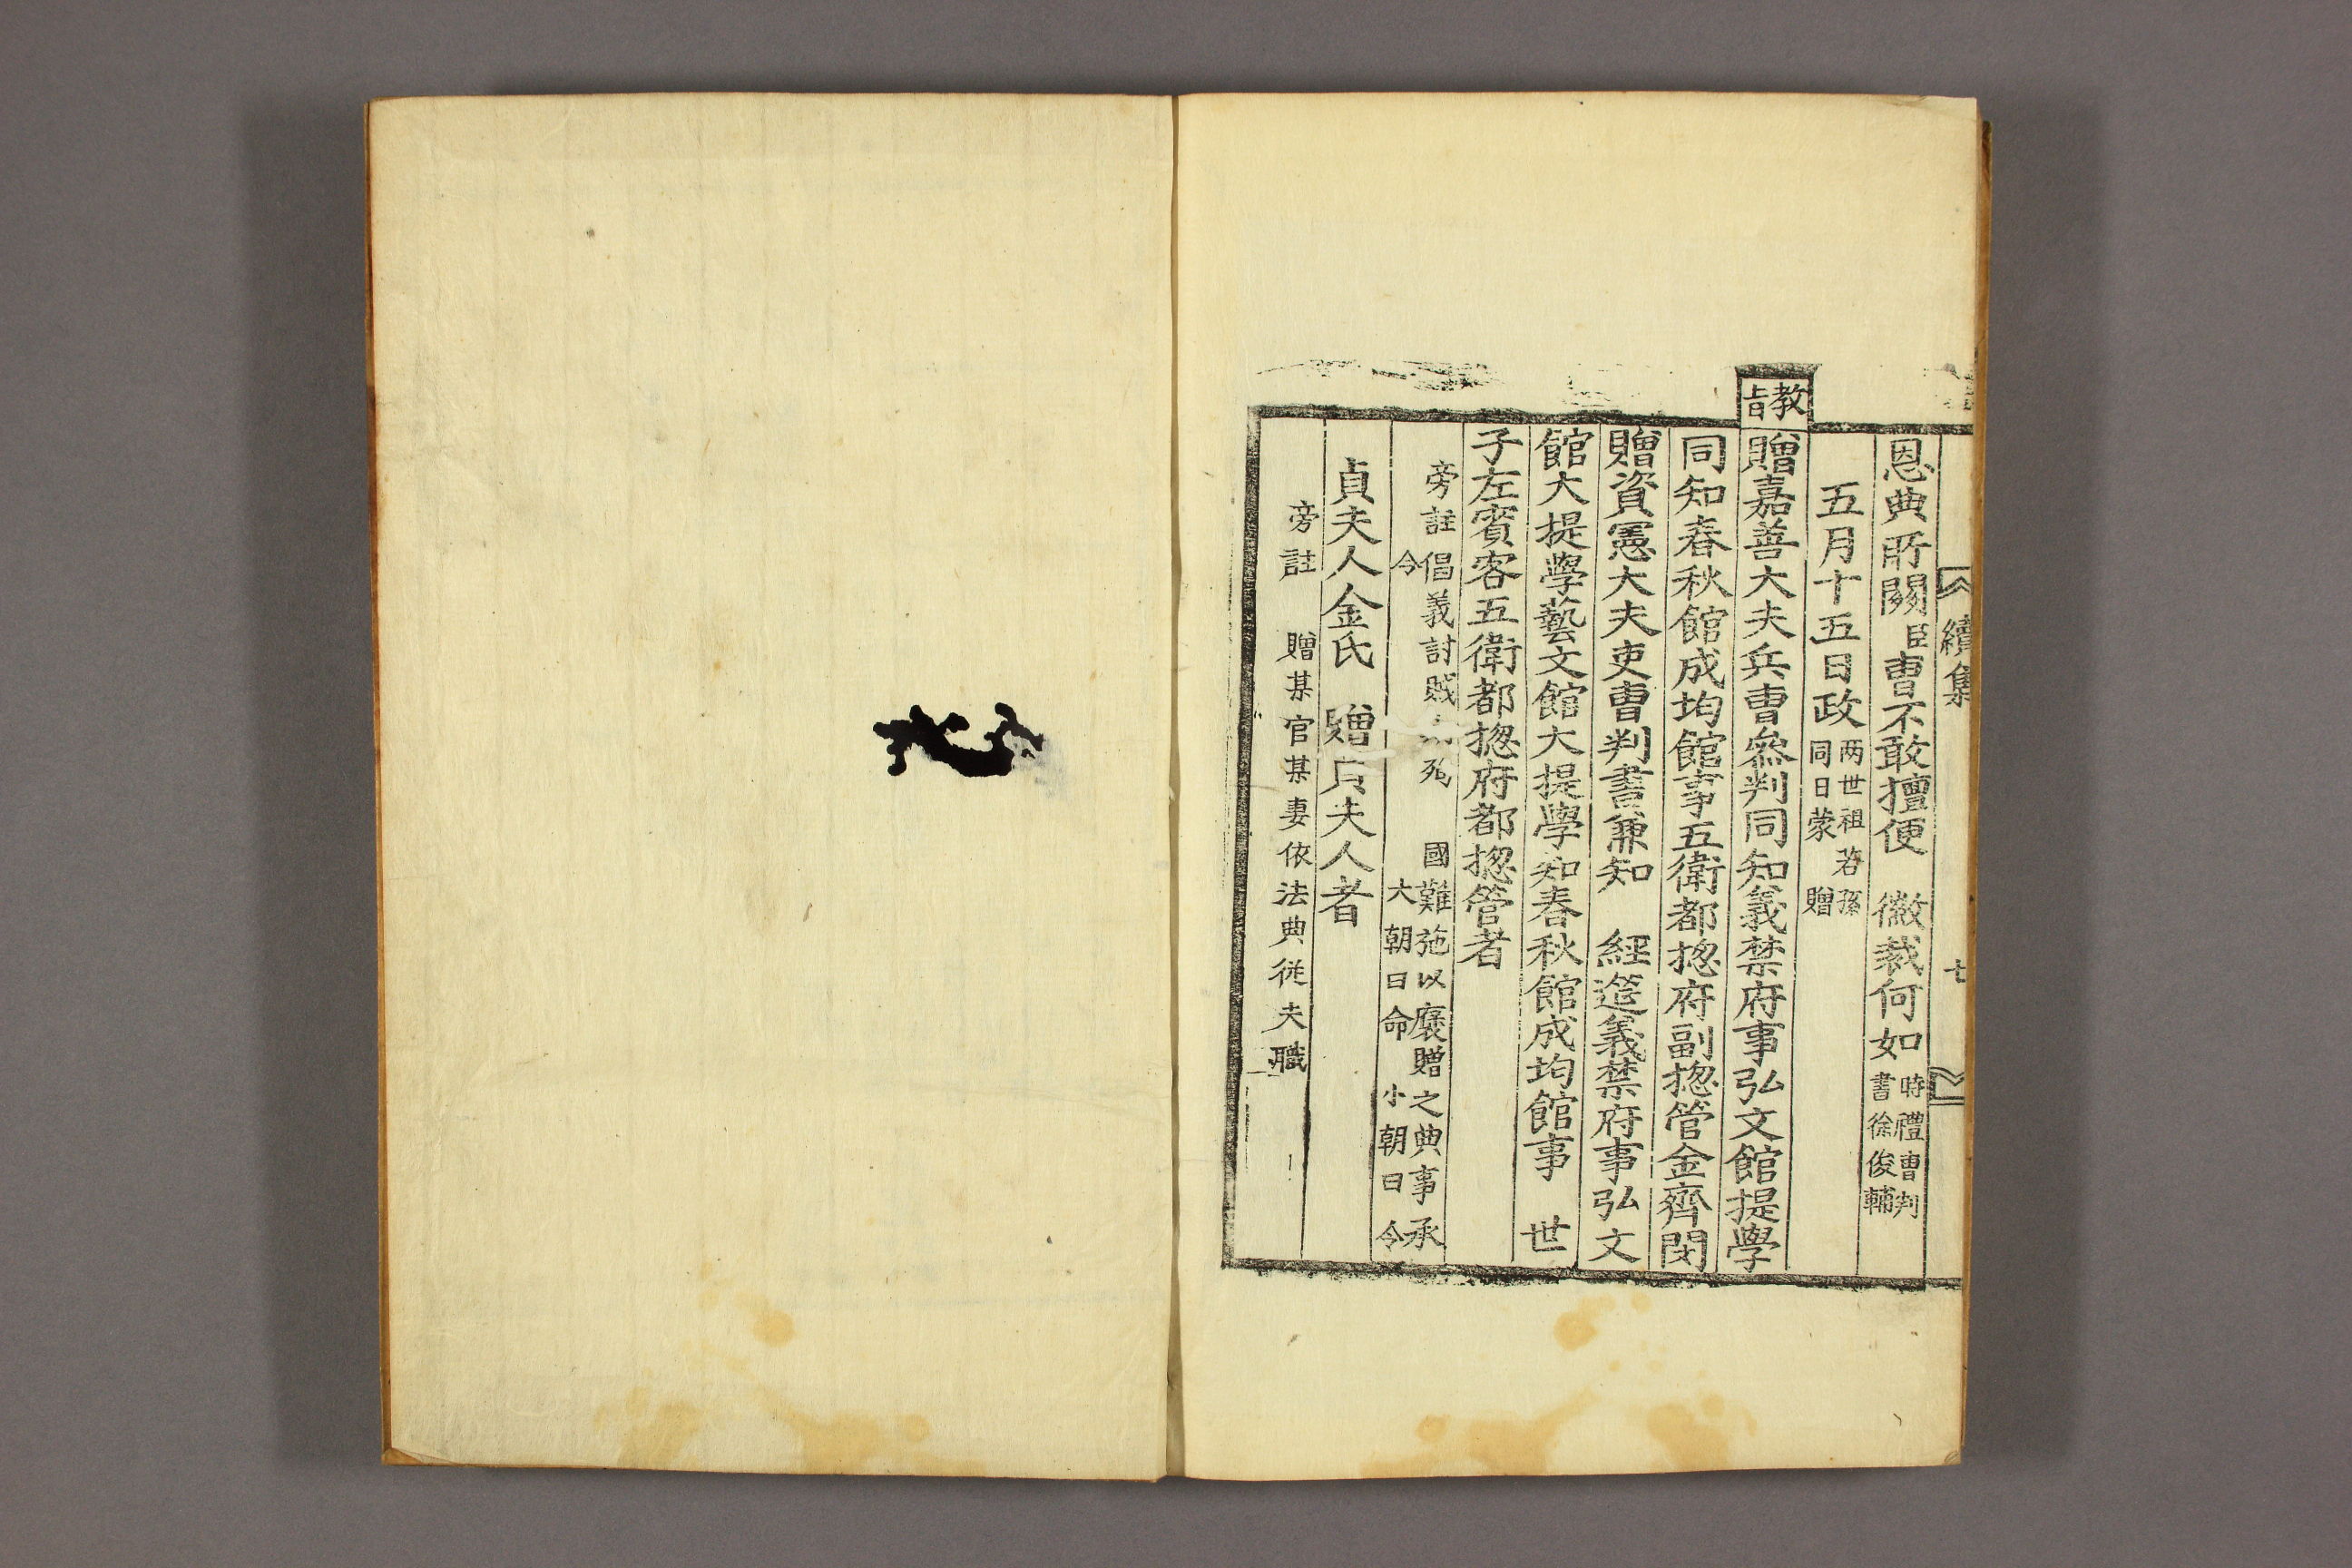 續集
七
恩典所關臣曺不敢擅便　徽裁何如時禮曺判書徐俊輔
五月十五日政兩世祖孫同日蒙贈
教旨
贈嘉善大夫兵曺叅判同知義禁府事弘文館提學
同知春秋館成均館事五衛都揔府副揔管金齊閔
贈資憲大夫吏曺判書兼知　經筵義禁府事弘文
館大提學藝文館大提學知春秋館成均館事　世
子左賓客五衛都揔府都揔管者
旁註倡義討賊死　國難施以褒贈之典事承
令　大朝曰命　小朝曰令
貞夫人金氏　贈貞夫人者
旁註　贈某官某妻依法典從夫職